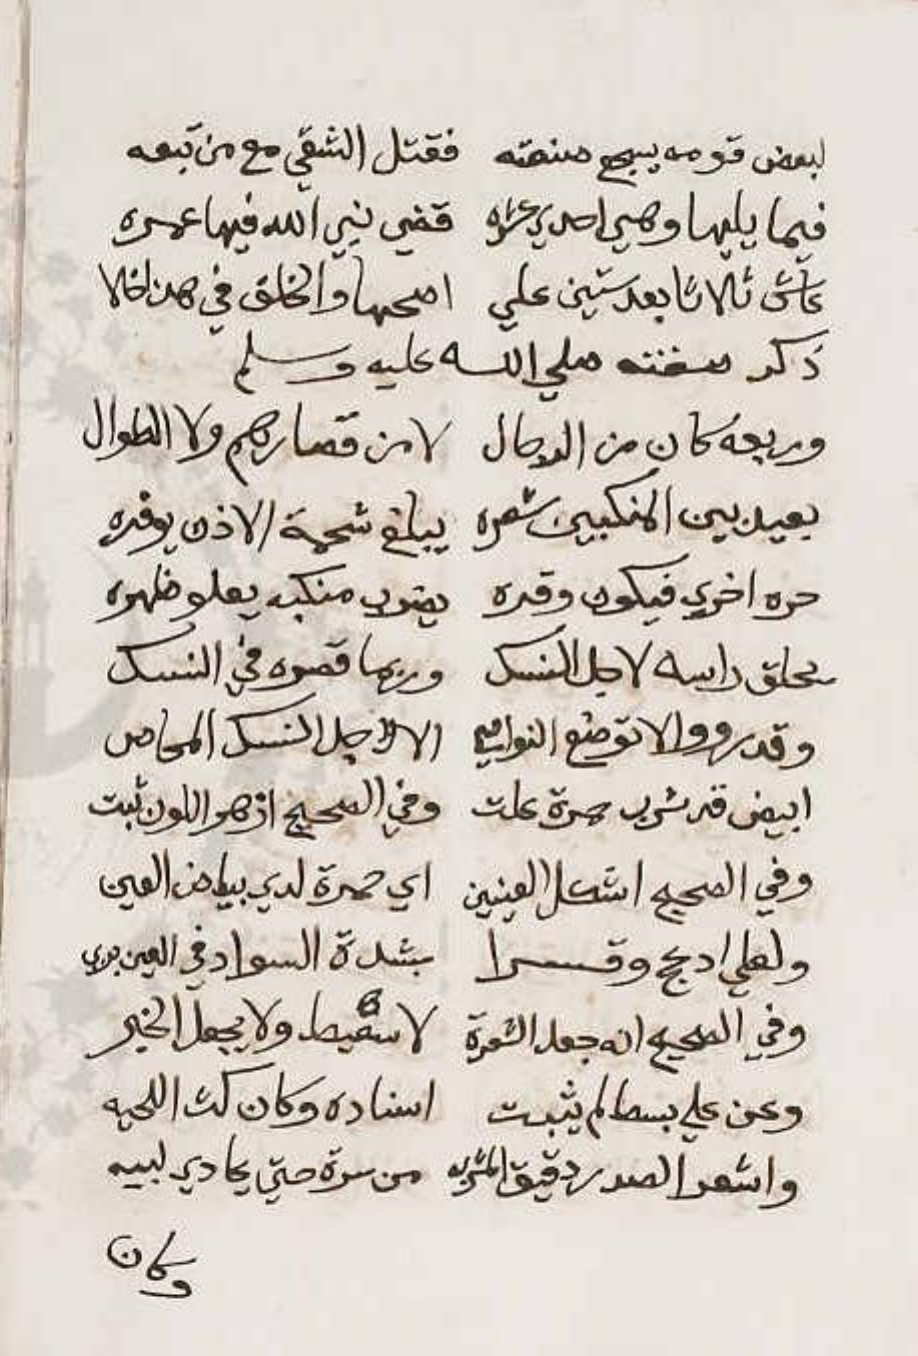 لبعض قومه يبيح منعته فقتل الشقي مع من تبعه
فيما يليها وهي احدي عشره قضي نبي الله فيها عمره
عاش ثالاثا بعد ستين علي اصحها والخلق في هذا خلا
ذكر صفته صلي الله عليه وسلم
وربعة كان من الرجال لا من قصارهم ولا الطوال
بعيد بين المنكبين شعره يبلغ شحمة الاذن يوفره
مره اخري فيكون وفره يضرب منكبه يعلو ظهره
يحلق راسه لاجل النسك وربما قصره في النسك
وقد رووا لا توضع النواصي الا لاجل النسك المحاص
ابيض قد شرب حمرة علت وفي الصحيح ازهر اللون ثبت
وفي الصحيح اشكل العينين اي حمرة لدي بياض العين
ولعلي ادعج وفسرا بشدة السواد في العين يري
وفي الصحيح انه جعد الشعرة لا سبط ولا بجعد الخبر
وعن علي بسط لم يثبت اسناده وكان كث اللحيه
واشعر الصدر دقيق المشربه من سرة حتي يحادي لببه
وكان